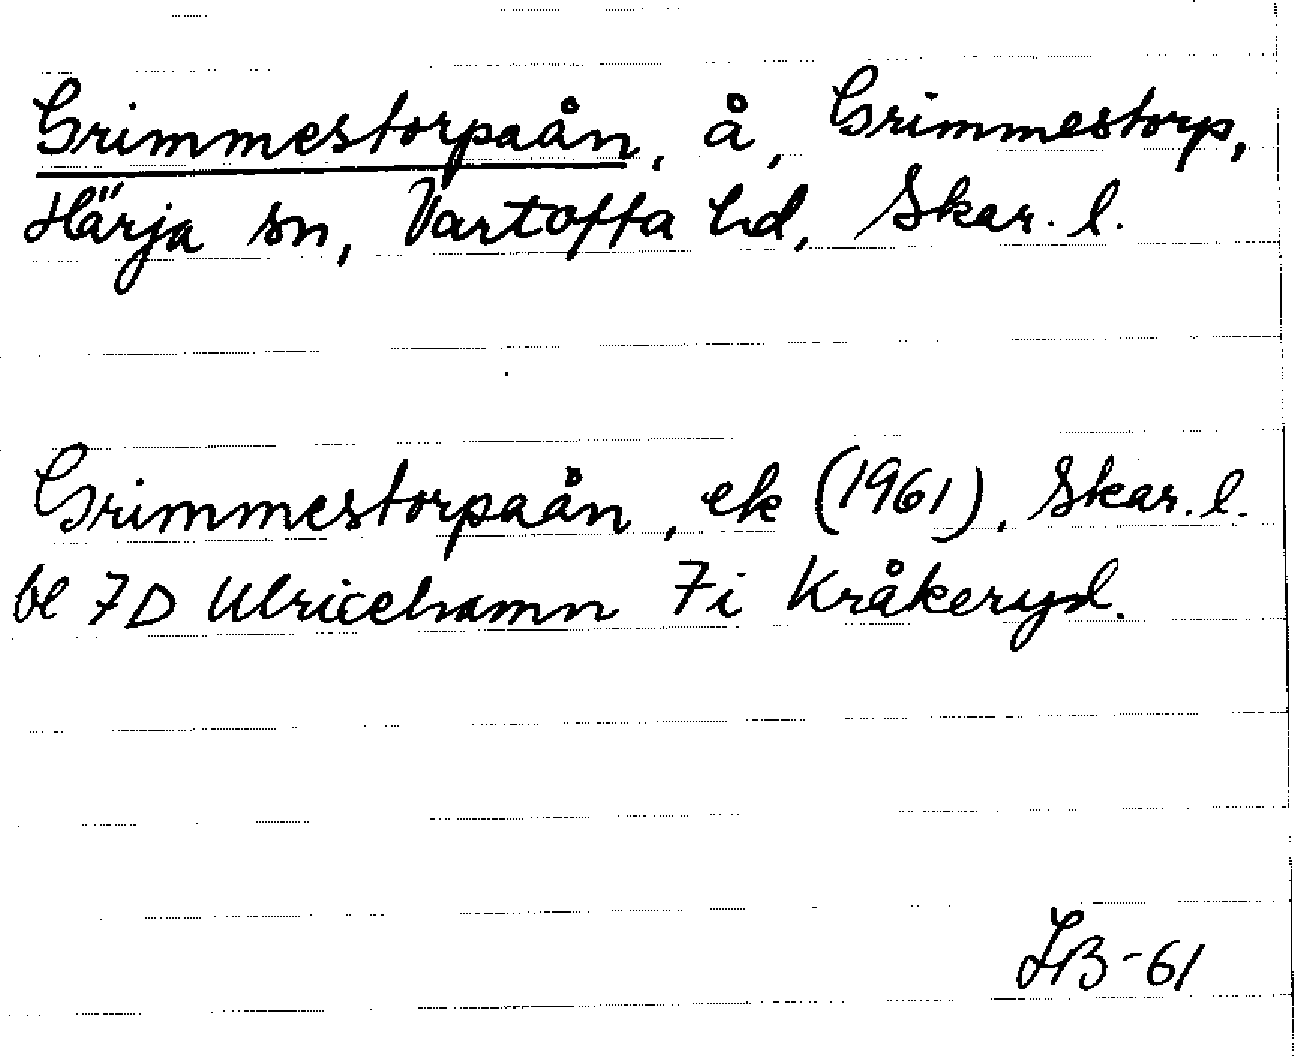 Grimmestorpaån, å, Grimmestorp,
Härja sn, Vartofta hd, Skar. l.
Grimmestorpaån, ek (1961), Skar. l.
bl 7D Ulricehamn 7i Kråkeryd.
LB-61